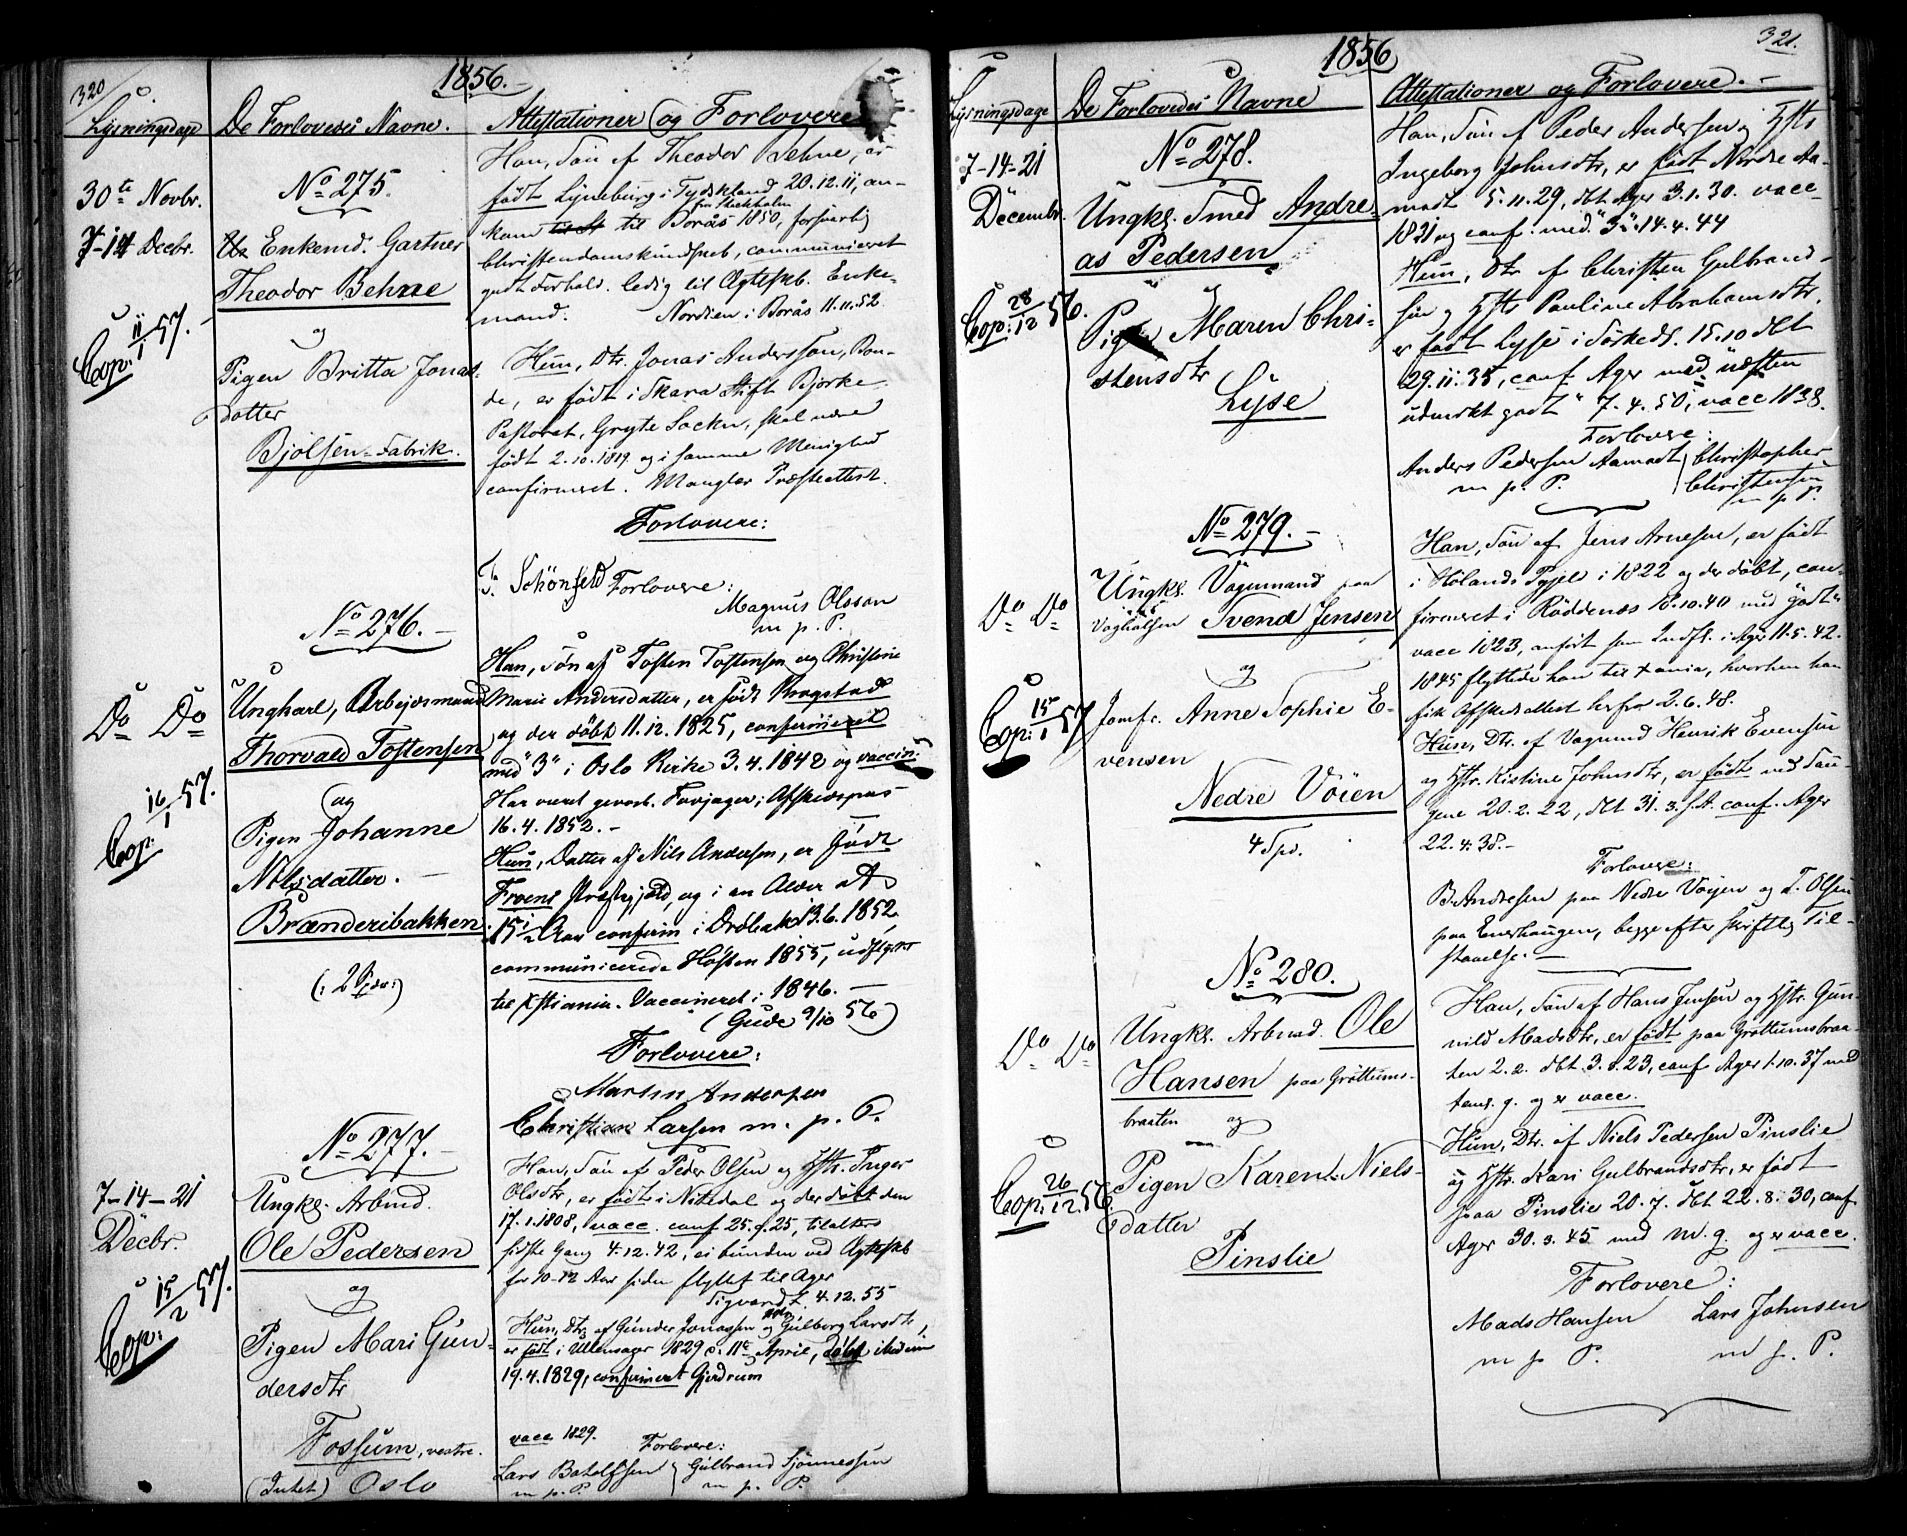 320
1856.
Lysningsdage
De Forlovedes Navne.
Attestationer og Forlovere
30te Novbr.
7-14 Decbr.
Cop: 11/1 57.
No 275.
Enkemd. Gartner
Theodor Behne
og
Pigen Britta Jonas-
datter
Bjølsen-Fabrik.
Han, Søn af Theodor Behne, er
født Lyneburg i Tydskland 20.12.11, an-
fra Stockholm
kom til Borås 1850, forsvarlig
Christendomskundskab, communiceret
godt Forhold. ledig til Ægteskb. Enke-
mand. Nordien i Borås 11.11.52
Hun, Dtr. Jonas Andersson, Bon-
de, er født i Skara Stift Bjorke
Pastorat, Gryte Sockn, skal være
født 2.10.1819 og i samme Menighed
confirmeret. Mangler Præsteattest.
Forlovere:
F. Schönfeld Forlovere:
Magnus Olsson
m. p. P.
No 276.
Do Do
Cop: 16/1 57.
Ungkarl, Arbejdsmand
Thorvald Tostensen
og
Pigen Johanne
Nilsdatter.
Brænderibakken
(: 2 Spd :)
Han, Søn af Tosten Tostensen og Christine
Marie Andersdatter, er født Kragstad
og der døbt 11.12.1825, confirmeret
med "3" i Oslo Kirke 3.4.1842 og vaccin.
Har været gevorb. Fodjager; Afskedspas
16.4.1852.-
Hun, Datter af Nils Andersen, er født
Froens Præstegjæld, og i en Alder af
15 1/2 Aar confirm i Drøbak 13.6.1852,
communicerede Høsten 1855, udflyttet
til Xstiania. Vaccineret i 1846.
(Gude 9/10 56)
Forlovere:
Martin Andersen
Christian Larsen m. p. P.
No 277.
7-14-21
Decbr.
Cop: 15/2 57.
Ungk. Arbmd.
Ole Pedersen
og
Pigen Mari Gun-
dersdtr
Fossum, vestre.
(Intet) Oslo
Han, Søn af Peder Olsen og Hstr. Inger
Olsdtr, er født i Nitedal og der døbt den
17.1.1808, vacc. conf 25.9.25, tilalters
sidste Gang 4.12.42, ei bunden ved Ægteskb
for 10-12 Aar siden flyttet til Ager
Sigvard 4.12.55
Hun, Dtr. af Gunder Jonassen og Gulborg Larsdtr,
er født i Ullensager 1829 d. 11te April, døbt
19.4.1829, confirmeret Gjerdrum
vacc 1829.
Forlovere:
Lars Botolfsen Gulbrand Sjønnessen
m. p. P. m. p. P.
321.
1856
Lysningsdage
De Forlovedes Navne
Attestationer og Forlovere.-
7-14-21
Decembr.
Cop: 28/12 56.
No 278.
Ungk. Smed Andre-
as Pedersen
og
Pigen Maren Chri-
stensdtr
Lyse
Han, Søn af Peder Andersen og Hsts
Ingeborg Johnsdtr, er født Nordre Aa-
modt 5.11.29, dbt Ager 3.1.30. vacc
1831 og conf. med "3" 14.4.44
Hun, Dtr af Christen Gulbrand-
sen og Hsts Pauline Abrahamsdtr,
er født Lysse i Sørkeds. 15.10 dbt
29.11.35, conf Ager med næsten
udmrkt godt" 7.4.50, vacc 1838.
Forlovere:
Anders Pedersen Aamodt Christopher
m. p. P. Christensen
m p P
No 279.-
Do Do
Cop: 15/1 57
Ungk. Vognmand paa
Svend Jensen
og
Jomfr. Anne Sophie E-
vensen
Nedre Vöien
4 Spd.
Han, Søn af Jens Arnesen, er født
i Hølands Pgjeld i 1822 og der døbt, con-
firmeret i Röddenæs 18.10.40 med "godt"
vacc 1823, anført som Indfl. i Ager 11.5.42.
1845 flyttede han til Xania, hvorhen han
fik Afskedsattest herfra 2.6.48.
Hun, Dtr. af Vognmd Henrik Evensen
og Hstr. Kistine Johnsdtr, er født ved Sau-
gene 20.2.22, dbt 31.3. s.A. conf. Ager
22.4.38.-
Forlovere:
B. Andresen paa Nedre Vøyen og T. Olsen
paa Enerhaugen, begge efter skriftlig Til-
staaelse.-
No 280.
Do Do
Cop: 26/12 56.
Ungk. Arbmd. Ole
Hansen paa Grøttums-
braaten og
Pigen Karen Niels-
datter
Pinslie
Han, Søn af Hans Jensen og Hstr. Gun-
nild Madsdtr, er født paa Grøttumsbraa-
ten 2.2. dbt 3.3.23, conf Ager 1.10.37 med
temg. g. og er vacc.
Hun, Dtr. af Niels Pedersen Pinslie
og Hstr. Kari Gulbrandsdtr, er født
paa Pinslie 20.7. dbt 22.8.30, conf
Ager 30.3.45 med m. g. og er vacc.
Forlovere:
Mads Hansen Lars Johnsen
m p P. m p. P.